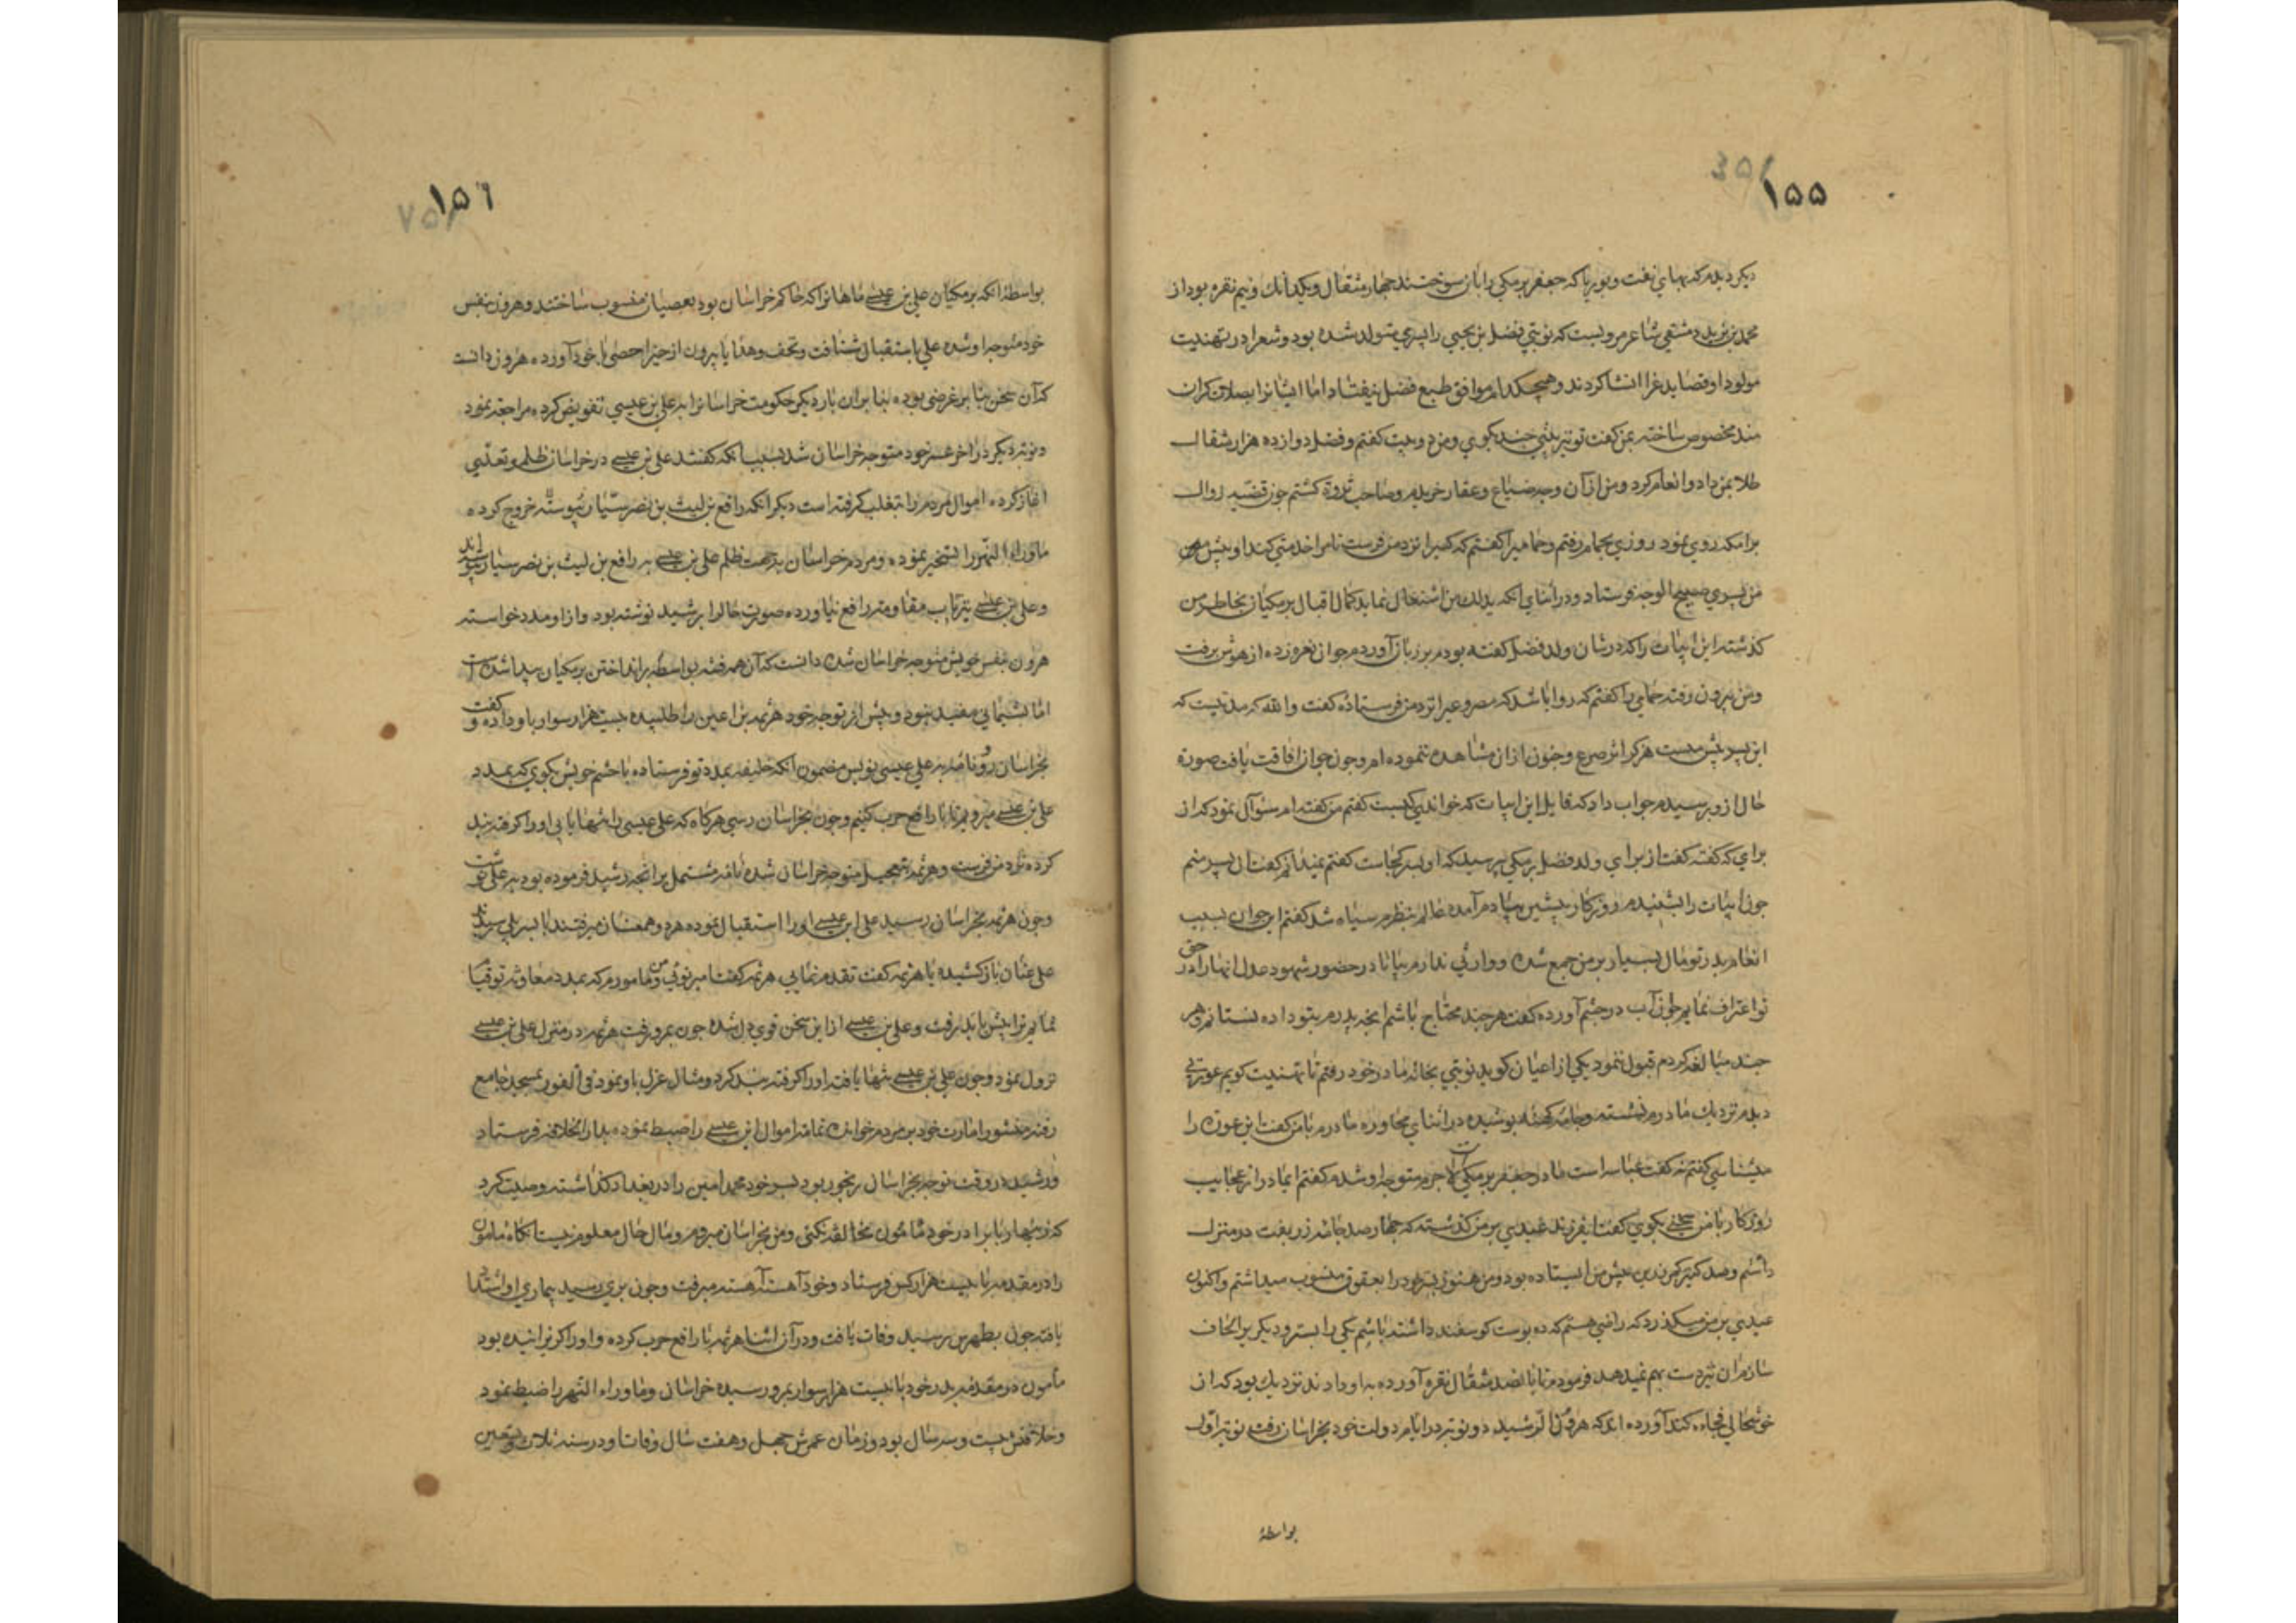 ۱۵۵
دیکر دیدم که بهای نفت و بوریا که جعفر برمکی را بان سوختند چهار مثقال و یکدانك و نیم نقره بود از
محمد بن یزید دمشقی شاعر مرویست که نوبتی فضل بن یحیی را پسری متولد شده بود و شعرا در تهنیت
مولود او قصاید غرا انشا کردند و هیچکدام موافق طبع فضل نیفتاد اما ایشانرا بصلات کران
مند مخصوص ساخته بمن کفت تو نیز بیتی چند بکوی و من دو بیت کفتم و فضل دوازده هزار مثقال
طلا بمن داد و انعام کرد و من از آن وجه ضیاع و عقار خریدم و صاحب ثروة کشتم چون قضیه زوال
برامکه روی نمود روزی بحمام رفتم و حمامی را کفتم که کسی را نزد من فرست تا مرا خدمتی کند او پیش
من پسری صبیح الوجه فرستاد و در اثنای انکه بدلك من اشتغال نماید کمال اقبال برمکیان بخاطر من
کذشته این ابیات را که در شان ولد فضل کفته بودم بر زبان آوردم جوان نعره زده از هوش برفت
و من بیرون رفته حمامی را کفتم که روا باشد که مصروعی را نزد من فرستاده کفت والله که مدتیست که
این پسر پیش منست هرکز اثر صرع و جنون ازان مشاهده ننموده ام و چون جوان افاقت یافت صورة
حال ازو پرسیدم جواب داد که قایل این ابیات که خواندی کیست کفتم من کفته ام سؤال نمود که از
برای که کفته کفت از برای ولد فضل برمکی پرسید که او پسر کجاست کفتم نمیدانم کفت ان پسر منم
چون ابیات را شنیدم روزکار پیشین بیادم آمده عالم بنظرم سیاه شد کفتم ای جوان بسبب
انعام پدر تو مال بسیار بر من جمع شده و وارثی ندارم بیا تا در حضور شهود عدل انها را در حق
تو اعتراف نمایم جوان آب در چشم آورده کفت هرچند محتاج باشم انچه پدرم بتو داده نستانم و هر
چند مبالغه کردم قبول ننمود یکی از اعیان کوید نوبتی بخانه مادر خود رفتم تا تهنیت کویم عورتی
دیدم نزدیك مادرم نشسته و جامه کهنه پوشیده در اثنای محاوره مادرم با من کفت این عورة را
میشناسی کفتم نه کفت عباسه است مادر جعفر برمکی لاجرم متوجه او شده کفتم ای مادر از عجایب
روزکار با من سخنی بکوی کفت ای فرزند عیدی بر من کذشته که چهار صد جامه زربفت در منزل
داشتم و صد کنیز کمربندین پیش من ایستاده بود و من هنوز پسر خود را بعقوق منسوب میداشتم و اکنون
عیدی بر من میکذرد که راضی هستم که ده پوست کوسفند داشته باشم یکی را بستر و دیکر برا لحاف
سازم ان نیز دست بهم نمیدهد فرمودم تا پانصد مثقال نقره آورده به او دادند نزدیك بود که از
خوشحالی فجاءه کند آورده اند که هرون الرشید دو نوبت در ایام دولت خود بخراسان رفت نوبت اول
بواسطهٔ
۱۵٦
بواسطهٔ انکه برمکیان علی بن عیسی ماهانرا که حاکم خراسان بود بعصیان منسوب ساختند و هرون بنفس
خود متوجه او شده علی باستقبال شتافت و تحف و هدایا بیرون از حیز احصی با خود آورده هرون دانست
که آن سخن بنا بر غرضی بوده بنا بران بار دیکر حکومت خراسانرا به علی بن عیسی تفویض کرده مراجعه نمود
و نوبة دیکر در اخر عمر خود متوجه خراسان شد بسبب انکه کفتند علی بن عیسی در خراسان ظلم و تعدی
اغاز کرده اموال مردم را بتغلب کرفته است دیکر انکه رافع بن لیث بن نصر سیار خروج کرده
ماوراء النهر را تسخیر نموده و مردم خراسان بجهت ظلم علی بن عیسی به رافع بن لیث بن نصر سیار پیوسته اند
و علی بن عیسی نیز تاب مقاومة رافع نیاورده صورت حال را برشید نوشته بود و از او مدد خواسته
هرون بنفس خویش متوجه خراسان شده دانست که آن همه فتنه بواسطه برانداختن برمکیان پیدا شده است
اما پشیمانی مفید نبود و پیش از توجه خود هرثمه بن اعین را طلبیده بیست هزار سوار باو داده کفت
بخراسان رو و نامه به علی عیسی نویس مضمون انکه خلیفه بمدد تو فرستاده با حشم خویش بکوی که بمدد
علی بن عیسی میرویم تا با رافع حرب کنیم و چون بخراسان رسی هرکاه که علی عیسی را تنها یابی او را کرفته بند
کرده نزد من فرست و هرثمه بتعجیل متوجه خراسان شده نامه مشتمل برانچه رشید فرموده بود به علی نوشت
و چون هرثمه بخراسان رسید علی ابن عیسی او را استقبال نموده هر دو همعنان میرفتند تا بسر پلی رسیدند
علی عنان باز کشیده با هرثمه کفت تقدم نمایی هرثمه کفت امیر تویی و من مامورم که بمدد معاونه تو قیام
نمایم ترا پیش باید رفت و علی بن عیسی از این سخن قوی دل شده چون بمرو رفت هرثمه در منزل علی بن عیسی
نزول نمود و چون علی بن عیسی تنها یافته او را کرفته بند کرد و مثال عزل باو نمود فی الفور بمسجد جامع
رفته منشور امارت خود بر مردم خوانده تمامة اموال ابن عیسی را ضبط نموده بدار الخلافه فرستاد
و رشید در وقت توجه بخراسان رنجور بود پسر خود محمد امین را در بغداد کذاشته وصیت کرد
که زینهار با برادر خود مامون مخالفه نکنی و من بخراسان میروم و مال حال معلوم نیست انکاه مامون
را در مقدمه با بیست هزار کس فرستاد و خود آهسته آهسته میرفت و چون بری رسید بیماری او اشتداد
یافته چون بطوس رسید وفات یافت و درآن اثنا هرثمه با رافع حرب کرده و او را کریزانیده بود
مأمون در مقدمه پدر خود با بیست هزار سوار بمرو رسیده خراسان و ماوراء النهر را ضبط نمود
و خلافتش بیست و سه سال بود و زمان عمرش چهل و هفت سال وفات او در سنه ثلاث و تسعین